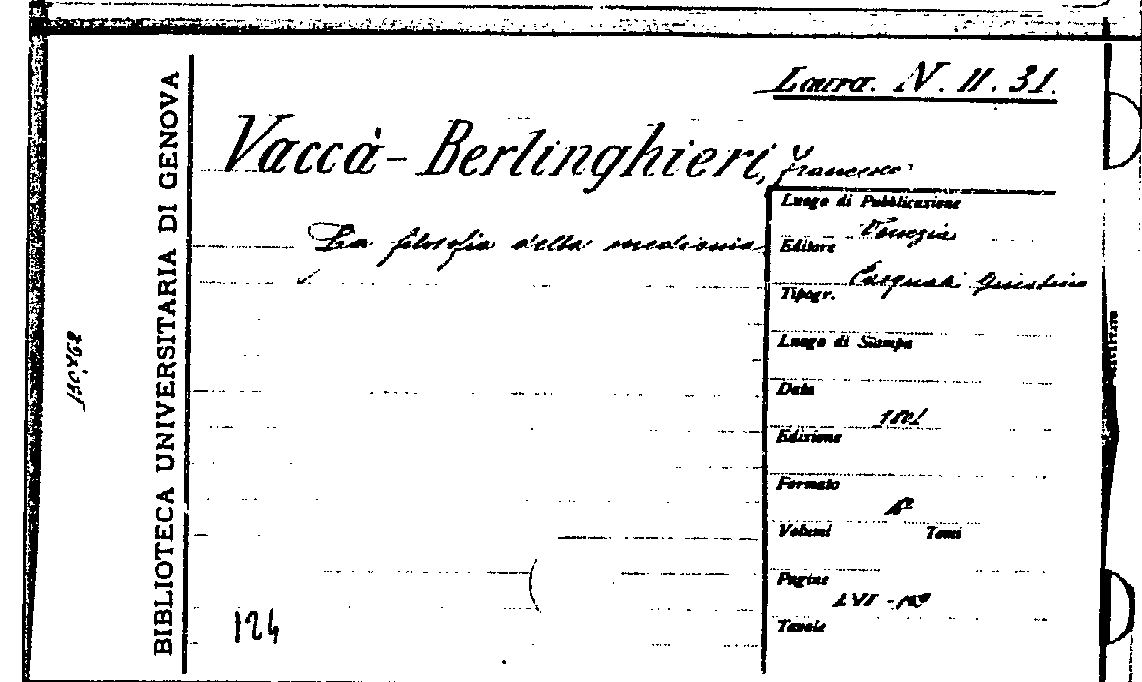 Laura. N. II. 31.
Vaccà-Berlinghieri, Francesco
Luogo di Pubblicazione
La filosofia della medicina
Venezia
Editore
Pasquali Giustino
Tipogr.
Luogo di Stampa
Data
1801
Edizione
Formato
8º
Volumi Tomi
Pagine
LVI -
Tavole
124
BIBLIOTECA UNIVERSITARIA DI GENOVA